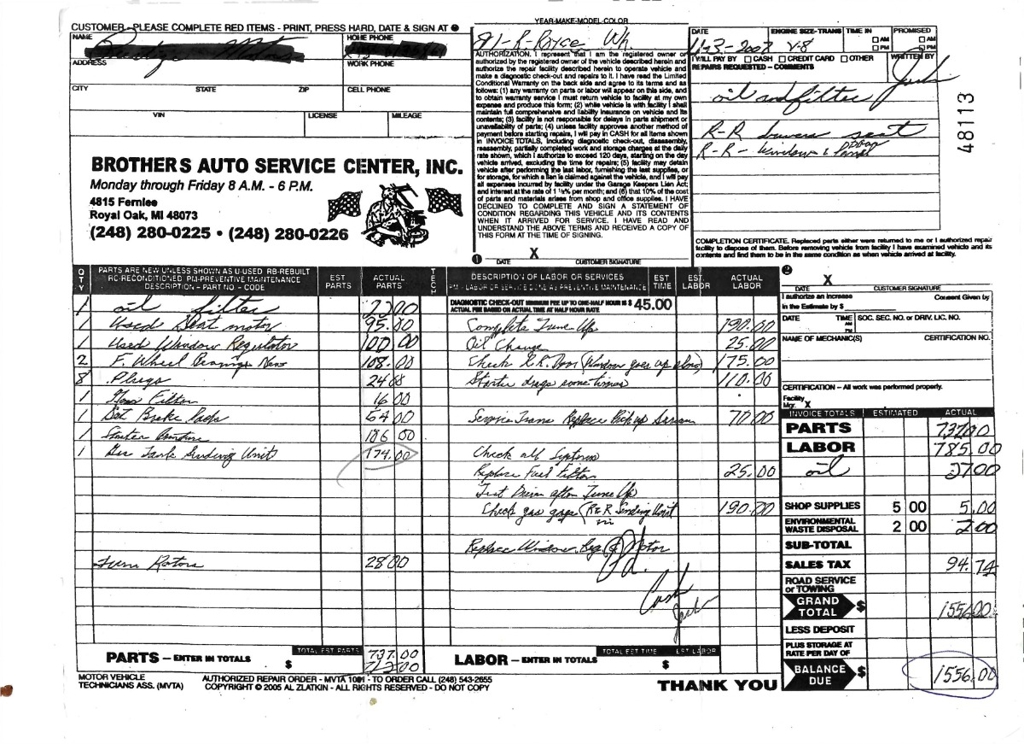 YEAR-MAKE-MODEL-COLOR
CUSTOMER - PLEASE COMPLETE RED ITEMS - PRINT, PRESS HARD, DATE & SIGN AT
NAME
HOME PHONE
ADDRESS
WORK PHONE
CITY STATE ZIP CELL PHONE
VIN LICENSE MILEAGE
BROTHERS AUTO SERVICE CENTER, INC.
Monday through Friday 8 A.M. - 6 P.M.
4815 Fernlee
Royal Oak, MI 48073
(248) 280-0225 • (248) 280-0226
81-R-Royce Wh
AUTHORIZATION. I represent that I am the registered owner or
authorized by the registered owner of the vehicle described herein and
authorize the repair facility described herein to operate vehicle and
make a diagnostic check-out and repairs to it. I have read the Limited
Conditional Warranty on the back side and agree to its terms and as
follows: (1) any warranty on parts or labor will appear on this side, and
to obtain warranty service I must return vehicle to facility at my own
expense and produce this form; (2) while vehicle is with facility I shall
maintain full comprehensive and liability insurance on vehicle and its
contents; (3) facility is not responsible for delays in parts shipment or
unavailability of parts; (4) unless facility approves another method of
payment before starting repairs, I will pay in CASH for all items shown
in INVOICE TOTALS, including diagnostic check-out, disassembly,
reassembly, partially completed work and storage charges at the daily
rate shown, which I authorize to exceed 120 days, starting on the day
vehicle arrived, excluding the time for repairs; (5) facility may detain
vehicle after performing the last labor, furnishing the last supplies, or
for storage, for which a lien is claimed against the vehicle, and I will pay
all expenses incurred by facility under the Garage Keepers Lien Act;
and interest at the rate of 1 ½% per month; and (6) that 10% of the cost
of parts and materials arises from shop and office supplies. I HAVE
DECLINED TO COMPLETE AND SIGN A STATEMENT OF
CONDITION REGARDING THIS VEHICLE AND ITS CONTENTS
WHEN IT ARRIVED FOR SERVICE. I HAVE READ AND
UNDERSTAND THE ABOVE TERMS AND RECEIVED A COPY OF
THIS FORM AT THE TIME OF SIGNING.
X
DATE CUSTOMER SIGNATURE
DATE ENGINE SIZE-TRANS TIME IN PROMISED
2007 V-8 AM PM AM PM
I WILL PAY BY CASH CREDIT CARD OTHER WRITTEN BY
REPAIRS REQUESTED - COMMENTS
oil and filter
R-R seat
R-R- window & door panel
48113
COMPLETION CERTIFICATE. Replaced parts either were returned to me or I authorized repair
facility to dispose of them. Before removing vehicle from facility I have examined vehicle and its
contents and find them to be in the same condition as when vehicle arrived at facility.
X
DATE CUSTOMER SIGNATURE
QTY PARTS ARE NEW UNLESS SHOWN AS U-USED RB-REBUILT RC-RECONDITIONED PM-PREVENTIVE MAINTENANCE DESCRIPTION - PART NO - CODE EST PARTS ACTUAL PARTS TECH
1 oil filter
1 Used Seat motor 95.00
1 Used Window Regulator 100.00
2 F. Wheel Bearings New 108.00
8 Plugs 24 88
1 Filter 16 00
1 Set Brake Pads 64 00
1 Starter 186 00
1 Gas Tank Sending Unit 174.00
Turn Rotors 28 00
DESCRIPTION OF LABOR OR SERVICES EST TIME EST LABOR ACTUAL LABOR
DIAGNOSTIC CHECK-OUT MINIMUM FEE UP TO ONE-HALF HOUR IS $ 45.00
ACTUAL FEE BASED ON ACTUAL TIME AT HALF HOUR RATE.
Complete Tune Up 190.00
Oil Change 25.00
Check R.R. Door (Window goes up slow) 175.00
Starter drags sometimes 110.00
Service Trans Replace Pick up Screen 70.00
Check all Systems
Replace Fuel Filter 25.00
Test Drive after Tune Up
Check gas gage (R&R Sending Unit 190.00
Replace Window Reg & Motor
Pd.
Cash
PARTS - ENTER IN TOTALS TOTAL EST PARTS $ 737.00
LABOR - ENTER IN TOTALS TOTAL EST TIME EST LABOR $
I authorize an increase
in the Estimate by $ Consent Given by
DATE TIME AM PM SOC. SEC. NO. or DRIV. LIC. NO.
NAME OF MECHANIC(S) CERTIFICATION NO.
CERTIFICATION - All work was performed properly.
Facility
Mgr. X
INVOICE TOTALS ESTIMATED ACTUAL
PARTS 737.00
LABOR 785.00
oil 27.00
SHOP SUPPLIES 5 00 5.00
ENVIRONMENTAL WASTE DISPOSAL 2 00 2.00
SUB-TOTAL
SALES TAX 94.74
ROAD SERVICE or TOWING
GRAND TOTAL $ 1556.00
LESS DEPOSIT
PLUS STORAGE AT RATE PER DAY OF
BALANCE DUE $ 1556.00
MOTOR VEHICLE
TECHNICIANS ASS. (MVTA)
AUTHORIZED REPAIR ORDER - MVTA 1001 - TO ORDER CALL (248) 543-2655
COPYRIGHT © 2005 AL ZLATKIN - ALL RIGHTS RESERVED - DO NOT COPY
THANK YOU